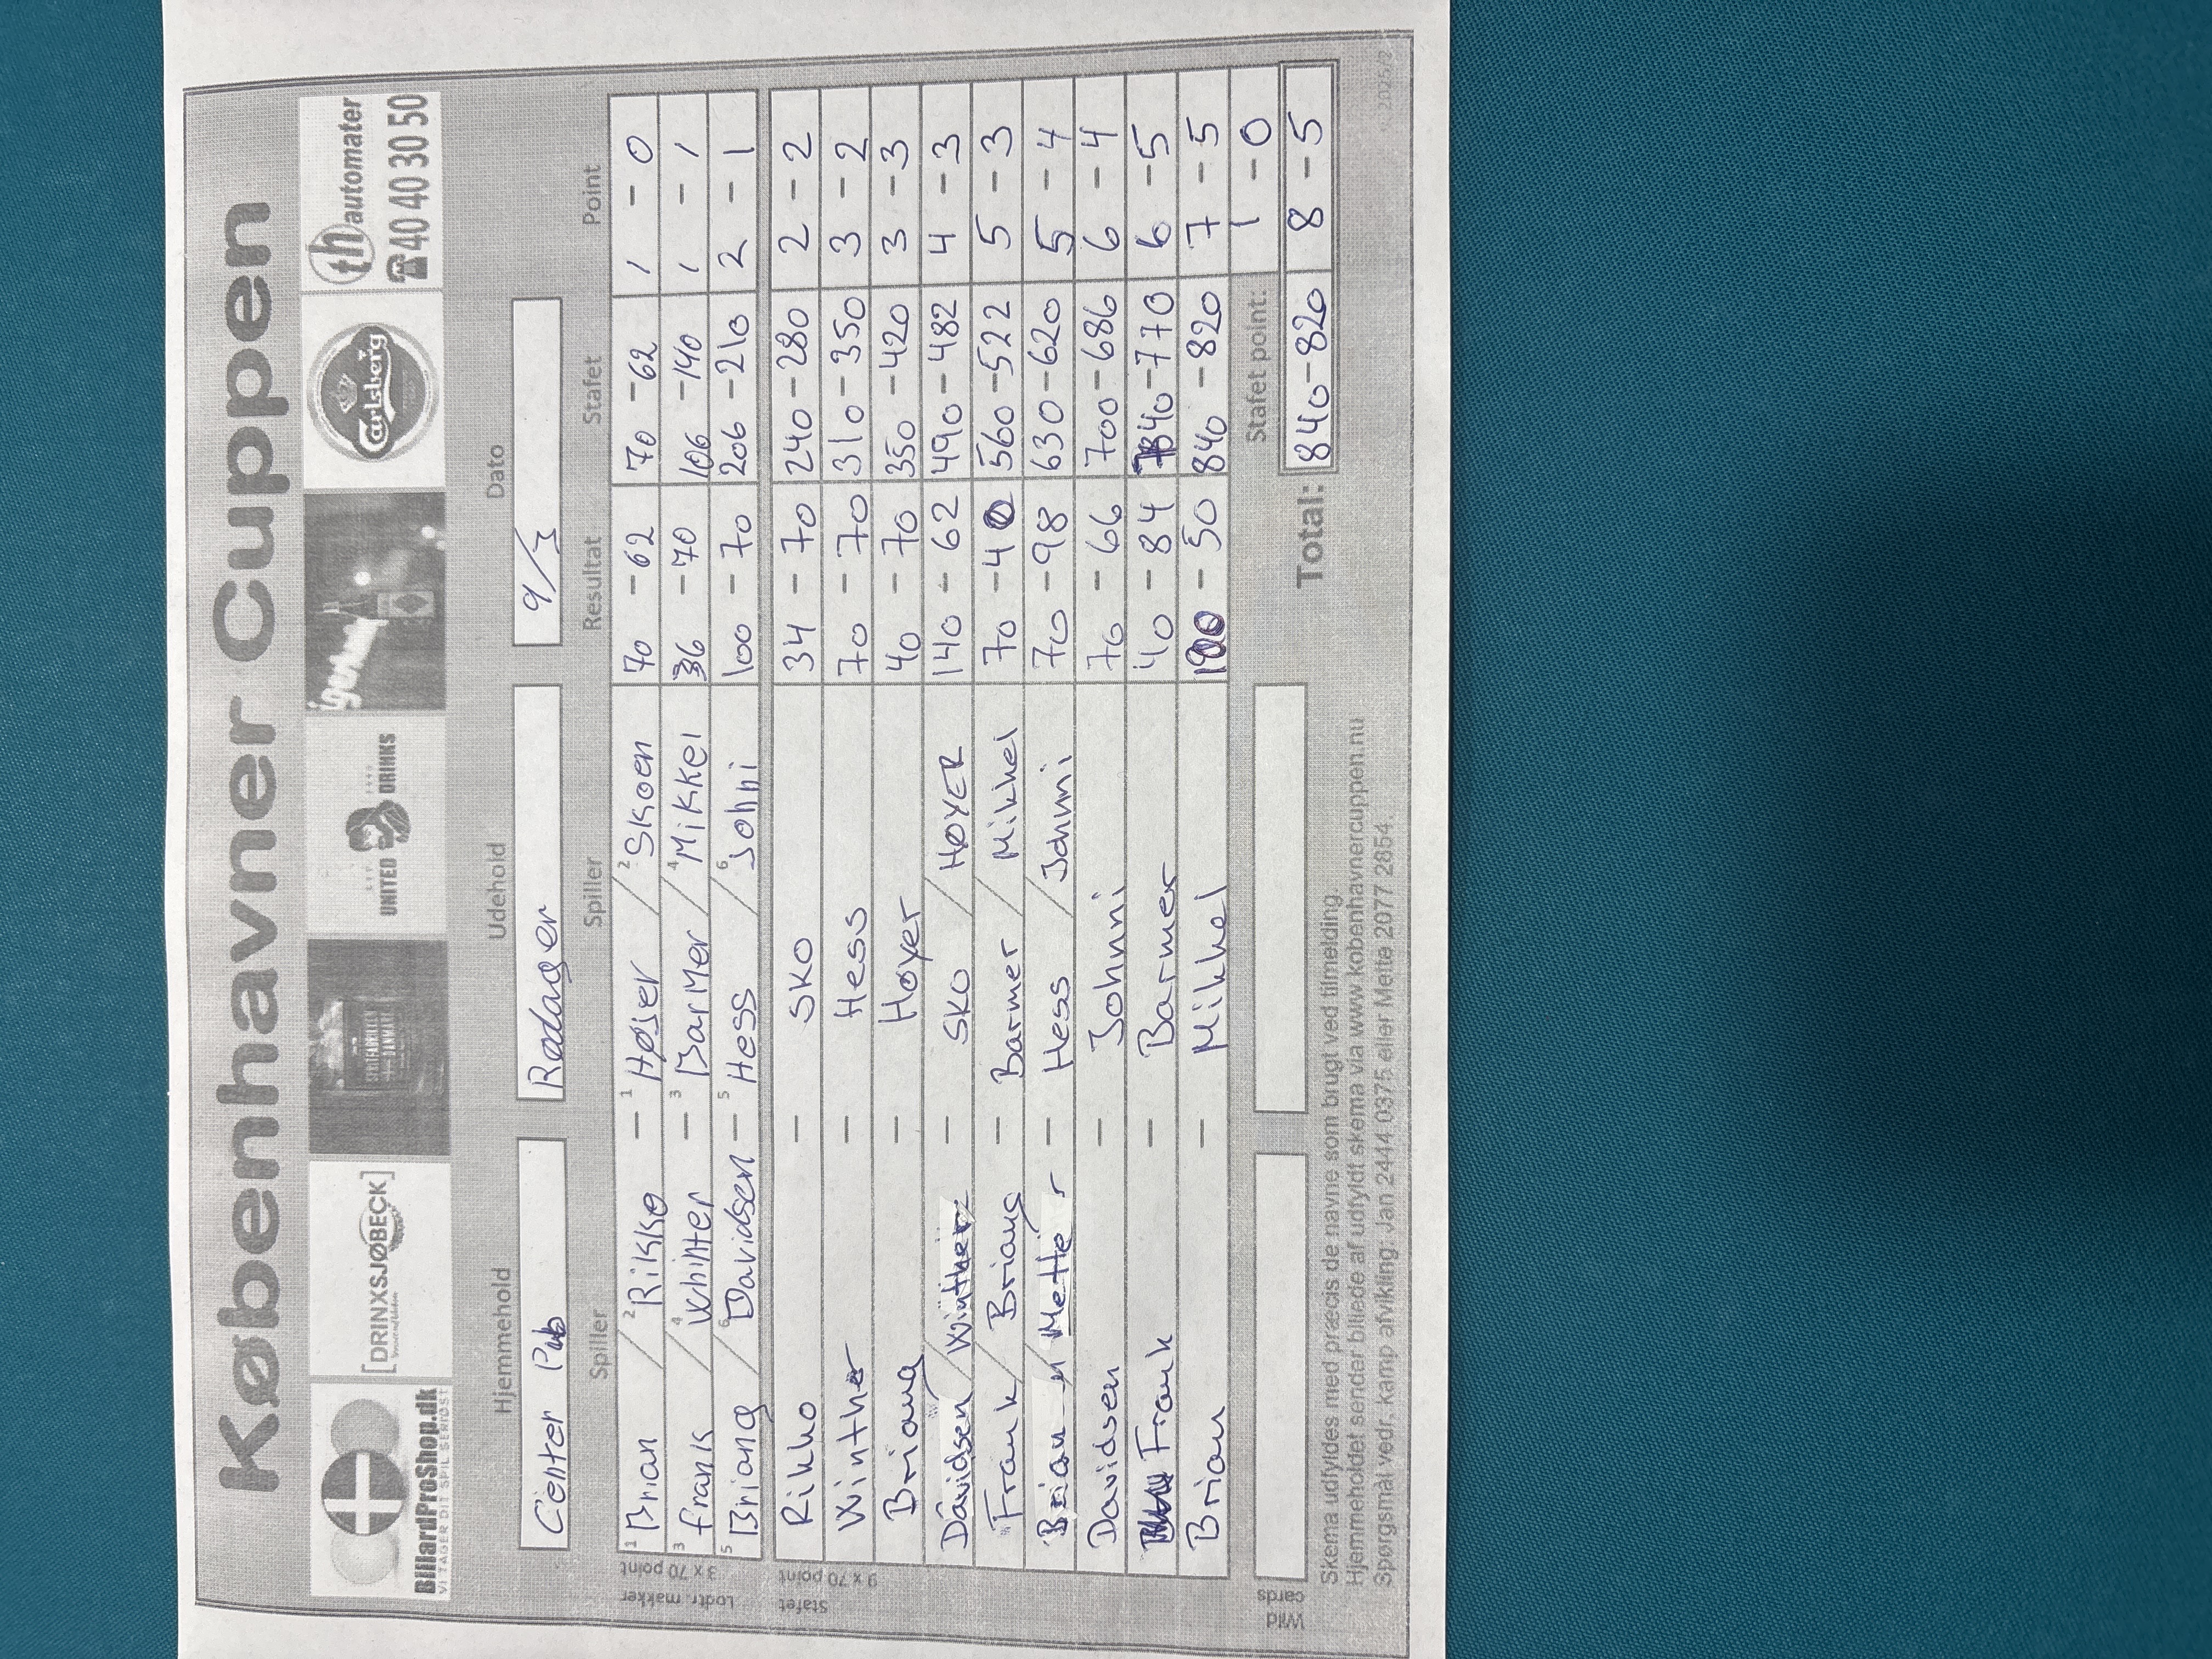 Københavner Cuppen
BillardProShop.dk
VI TAGER DIT SPIL SERIØST
[DRINXSJØBECK]
SPRITFABRIKEN DANMARK
UNITED DRINKS
Carlsberg
th automater
☎40 40 30 50
Hjemmehold Udehold Dato
Center Pub Rødager 9/3
Spiller Spiller Resultat Stafet Point
Lodtr. makker 3 x 70 point
1 Brian / 2 Rikke — 1 Højer / 2 Skoen 70 - 62 70 - 62 1 - 0
3 frank / 4 Whinter — 3 Barmer / 4 Mikkel 36 - 70 106 - 140 1 - 1
5 Briang / 6 Davidsen — 5 Hess / 6 Johni 100 - 70 206 - 210 2 - 1
Stafet 9 x 70 point
Rikke — Sko 34 - 70 240 - 280 2 - 2
Winther — Hess 70 - 70 310 - 350 3 - 2
Briang — Høyer 40 - 70 350 - 420 3 - 3
Davidsen / Winther — Sko / HØYER 140 - 62 490 - 482 4 - 3
Frank / Briang — Barmer / Mikkel 70 - 40 560 - 522 5 - 3
Brian / Mette — Hess / Johnni 70 - 98 630 - 620 5 - 4
Davidsen — Johnni 70 - 66 700 - 686 6 - 4
Frank — Barmer 40 - 84 740 - 770 6 - 5
Brian — Mikkel 100 - 50 840 - 820 7 - 5
Wild cards Stafet point: 1 - 0
Total: 840 - 820 8 - 5
Skema udfyldes med præcis de navne som brugt ved tilmelding.
Hjemmeholdet sender billede af udfyldt skema via www.kobenhavnercuppen.nu
Spørgsmål vedr. kamp afvikling: Jan 2444 0375 eller Mette 2077 2854.
2025/2